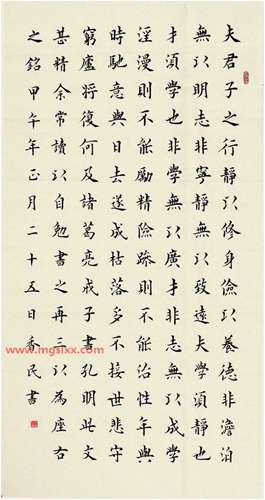 夫君子之行靜以修身儉以養德非澹泊
無以明志非寧靜無以致遠夫學須靜也
才須學也非學無以廣才非志無以成學
淫漫則不能勵精險躁則不能治性年與
時馳意與日去遂成枯落多不接世悲守
窮廬將復何及諸葛亮戒子書孔明此文
甚精余常讀以自勉書之再三以為座右
之銘甲午年正月二十五日香民書
www.mgsixx.com